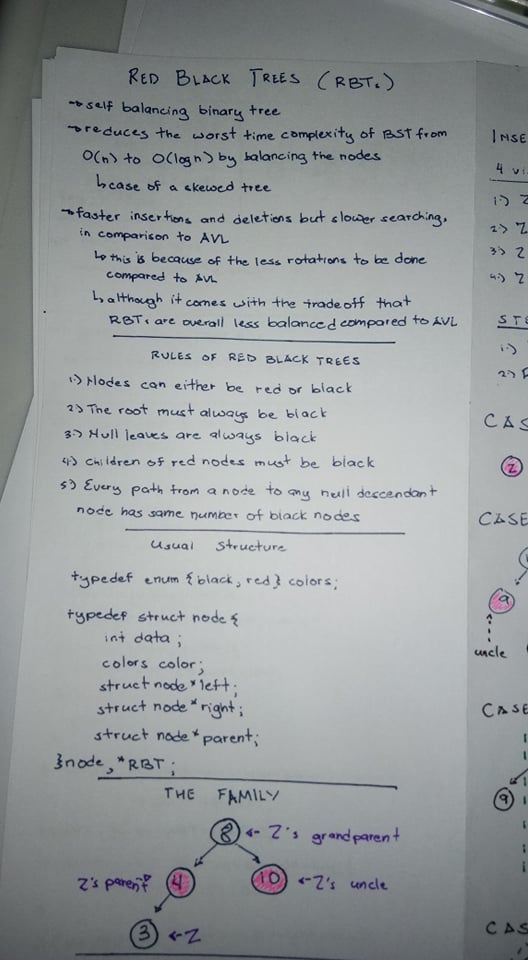 RED BLACK TREES (RBTs)
→ self balancing binary tree
→ reduces the worst time complexity of BST from
O(n) to O(logn) by balancing the nodes
↳ case of a skewed tree
→ faster insertions and deletions but slower searching,
in comparison to AVL
↳ this is because of the less rotations to be done
compared to AVL
↳ although it comes with the tradeoff that
RBTs are overall less balanced compared to AVL
RULES OF RED BLACK TREES
1.) Nodes can either be red or black
2.) The root must always be black
3.) Null leaves are always black
4.) children of red nodes must be black
5.) Every path from a node to any null descendant
node has same number of black nodes
Usual Structure
typedef enum {black, red} colors;
typedef struct node {
int data;
colors color;
struct node *left;
struct node *right;
struct node* parent;
}node, *RBT;
THE FAMILY
8 ← Z's grandparent
Z's parent → 4
10 ← Z's uncle
3 ← Z
INSE
4
1.) Z
2.) Z
3.) Z
4.) Z
ST
1.)
2.)
CAS
Z
CASE
9
uncle
CASE
9
CAS